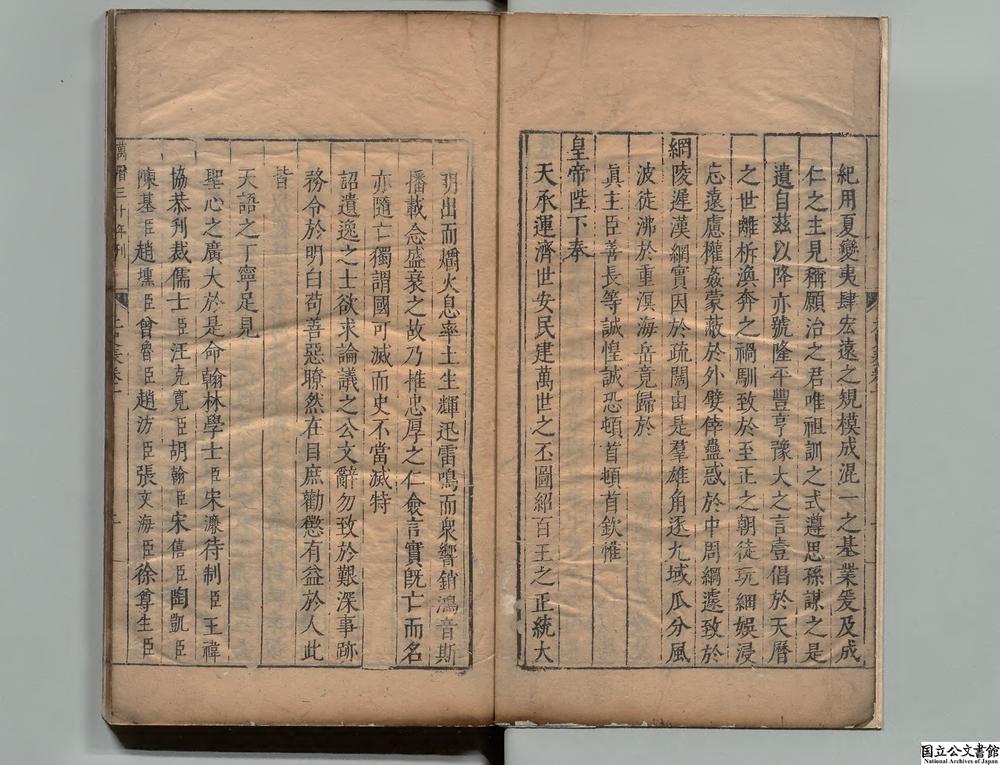 紀用夏變夷肆宏遠之規模成混一之基業爰及成
仁之主見稱願治之君唯祖訓之式遵思孫謀之是
遺自茲以降亦號隆平豐亨豫大之言壹倡於天曆
之世離析渙奔之禍馴致於至正之朝徒玩細娛浸
忘遠慮權姦蒙蔽於外嬖倖蠱惑於中周綱遽致於
網陵遲漢網實因於疏闊由是羣雄角逐九域瓜分風
波徒沸於重溟海岳竟歸於
眞主臣善長等誠惶誠恐頓首頓首欽惟
皇帝陛下奉
天承運濟世安民建萬世之丕圖紹百王之正統大
明出而爝火息率土生輝迅雷鳴而衆響銷鴻音斯
播載念盛衰之故乃推忠厚之仁僉言實旣亡而名
亦隨亡獨謂國可滅而史不當滅特
詔遺逸之士欲求論議之公文辭勿致於艱深事跡
務令於明白苟善惡瞭然在目庶勸懲有益於人此
皆
天語之丁寧足見
聖心之廣大於是命翰林學士臣宋濂待制臣王禕
協恭刋裁儒士臣汪克寬臣胡翰臣宋僖臣陶凱臣
陳基臣趙壎臣曾魯臣趙汸臣張文海臣徐尊生臣
萬曆三十年刊
国立公文書館
National Archives of Japan